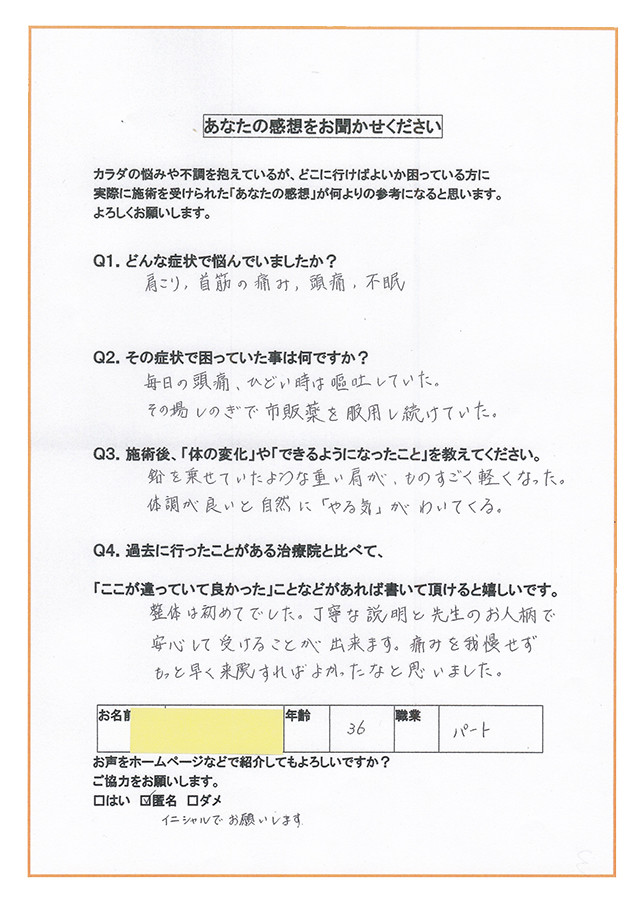 あなたの感想をお聞かせください
カラダの悩みや不調を抱えているが、どこに行けばよいか困っている方に
実際に施術を受けられた「あなたの感想」が何よりの参考になると思います。
よろしくお願いします。
Q1．どんな症状で悩んでいましたか？
肩こり，首筋の痛み，頭痛，不眠
Q2．その症状で困っていた事は何ですか？
毎日の頭痛、ひどい時は嘔吐していた。
その場しのぎで市販薬を服用し続けていた。
Q3．施術後、「体の変化」や「できるようになったこと」を教えてください。
鉛を乗せていたような重い肩が、ものすごく軽くなった。
体調が良いと自然に「やる気」がわいてくる。
Q4．過去に行ったことがある治療院と比べて、
「ここが違っていて良かった」ことなどがあれば書いて頂けると嬉しいです。
整体は初めてでした。丁寧な説明と先生のお人柄で
安心して受けることが出来ます。痛みを我慢せず
もっと早く来院すればよかったなと思いました。
お名前 年齢 36 職業 パート
お声をホームページなどで紹介してもよろしいですか？
ご協力をお願いします。
□はい ☑匿名 □ダメ
イニシャルでお願いします
3